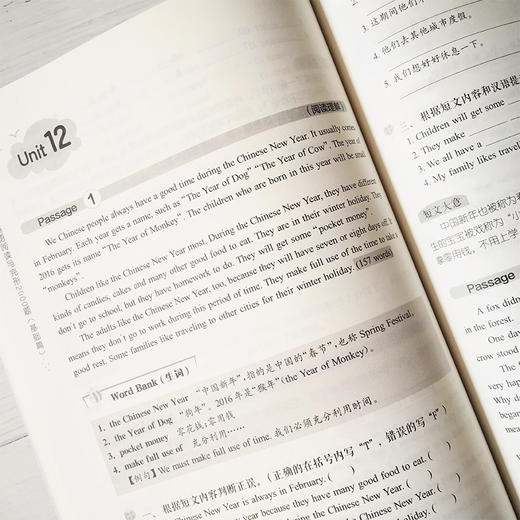 Unit 12
(阅读理解)
Passage 1
We Chinese people always have a good time during the Chinese New Year. It usually comes
in February. Each year gets a name, such as "The Year of Dog" "The Year of Cow". The year of
2016 gets its name "The Year of Monkey". The children who are born in this year will be small
"monkeys".
Children like the Chinese New Year most. During the Chinese New Year, they have different
kinds of candies, cakes and many other good food to eat. They are in their winter holiday. They
don't go to school, but they have homework to do. They will get some "pocket money".
The adults like the Chinese New Year, too, because they will have seven or eight days off. It
means they don't go to work during this period of time. They make full use of the time to take a
good rest. Some families like traveling to other cities for their winter holiday. (157 words)
Word Bank (生词)
1. the Chinese New Year "中国新年", 指的是中国的"春节", 也称 Spring Festival.
2. the Year of Dog "狗年". 2016 年是"猴年"(the Year of Monkey).
3. pocket money 零花钱;零用钱
4. make full use of 充分利用……
【例句】We must make full use of time. 我们必须充分利用时间。
一、根据短文内容判断正误。(正确的在括号内写"T", 错误的写"F")
Chinese New Year is always in February. ( )
year because they have many good food to eat. ( )
during the Chinese New Year. ( )
Chinese New Year. ( )
holiday. ( )
3. 这期间他们不
4. 他们去其他城市度假。
5. 我们想好好休息一下。
二、根据短文内容和汉语提
1. Children will get some
2. They make
3. We all have a
4. My family likes traveling
短文大意
中国新年也被称为
生的宝宝被戏称为"小
拿零用钱,不用上学
Passage
A fox didn
in the forest.
One day
crow stood
The
very hap
Why do
day b
so